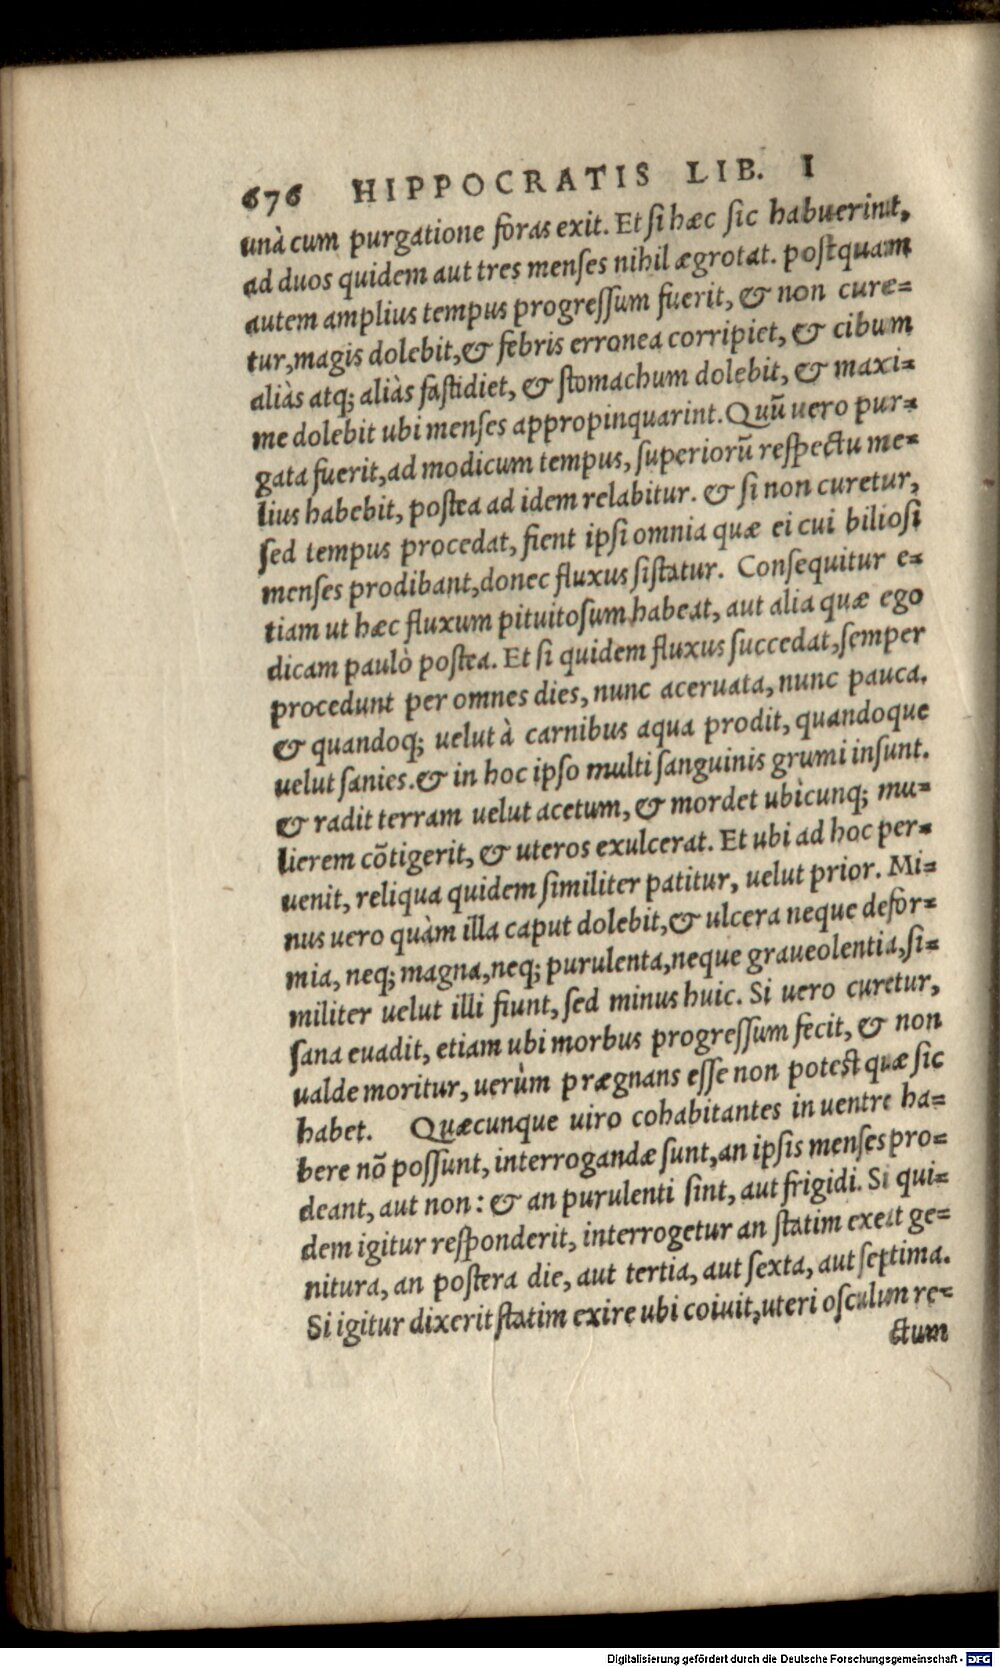 676 HIPPOCRATIS LIB. I
unà cum purgatione foras exit. Et si hæc sic habuerint,
ad duos quidem aut tres menses nihil ægrotat. postquam
autem amplius tempus progressum fuerit, & non cure=
tur, magis dolebit, & febris erronea corripiet, & cibum
aliàs atq; aliàs fastidiet, & stomachum dolebit, & maxi=
me dolebit ubi menses appropinquarint. Quũ uero pur=
gata fuerit, ad modicum tempus, superiorũ respectu me=
lius habebit, postea ad idem relabitur. & si non curetur,
sed tempus procedat, fient ipsi omnia quæ ei cui biliosi
menses prodibant, donec fluxus sistatur. Consequitur e=
tiam ut hæc fluxum pituitosum habeat, aut alia quæ ego
dicam paulò postea. Et si quidem fluxus succedat, semper
procedunt per omnes dies, nunc aceruata, nunc pauca.
& quandoq; uelut à carnibus aqua prodit, quandoque
uelut sanies. & in hoc ipso multi sanguinis grumi insunt.
& radit terram uelut acetum, & mordet ubicunq; mu=
lierem cõtigerit, & uteros exulcerat. Et ubi ad hoc per=
uenit, reliqua quidem similiter patitur, uelut prior. Mi=
nus uero quàm illa caput dolebit, & ulcera neque defor=
mia, neq; magna, neq; purulenta, neque graueolentia, si=
militer uelut illi fiunt, sed minus huic. Si uero curetur,
sana euadit, etiam ubi morbus progressum fecit, & non
ualde moritur, uerùm prægnans esse non potest quæ sic
habet. Quæcunque uiro cohabitantes in uentre ha=
bere nõ possunt, interrogandæ sunt, an ipsis menses pro=
deant, aut non: & an purulenti sint, aut frigidi. Si qui=
dem igitur responderit, interrogetur an statim exeat ge=
nitura, an postera die, aut tertia, aut sexta, aut septima.
Si igitur dixerit statim exire ubi coiuit, uteri osculum re=
ctum
Digitalisierung gefördert durch die Deutsche Forschungsgemeinschaft - DFG